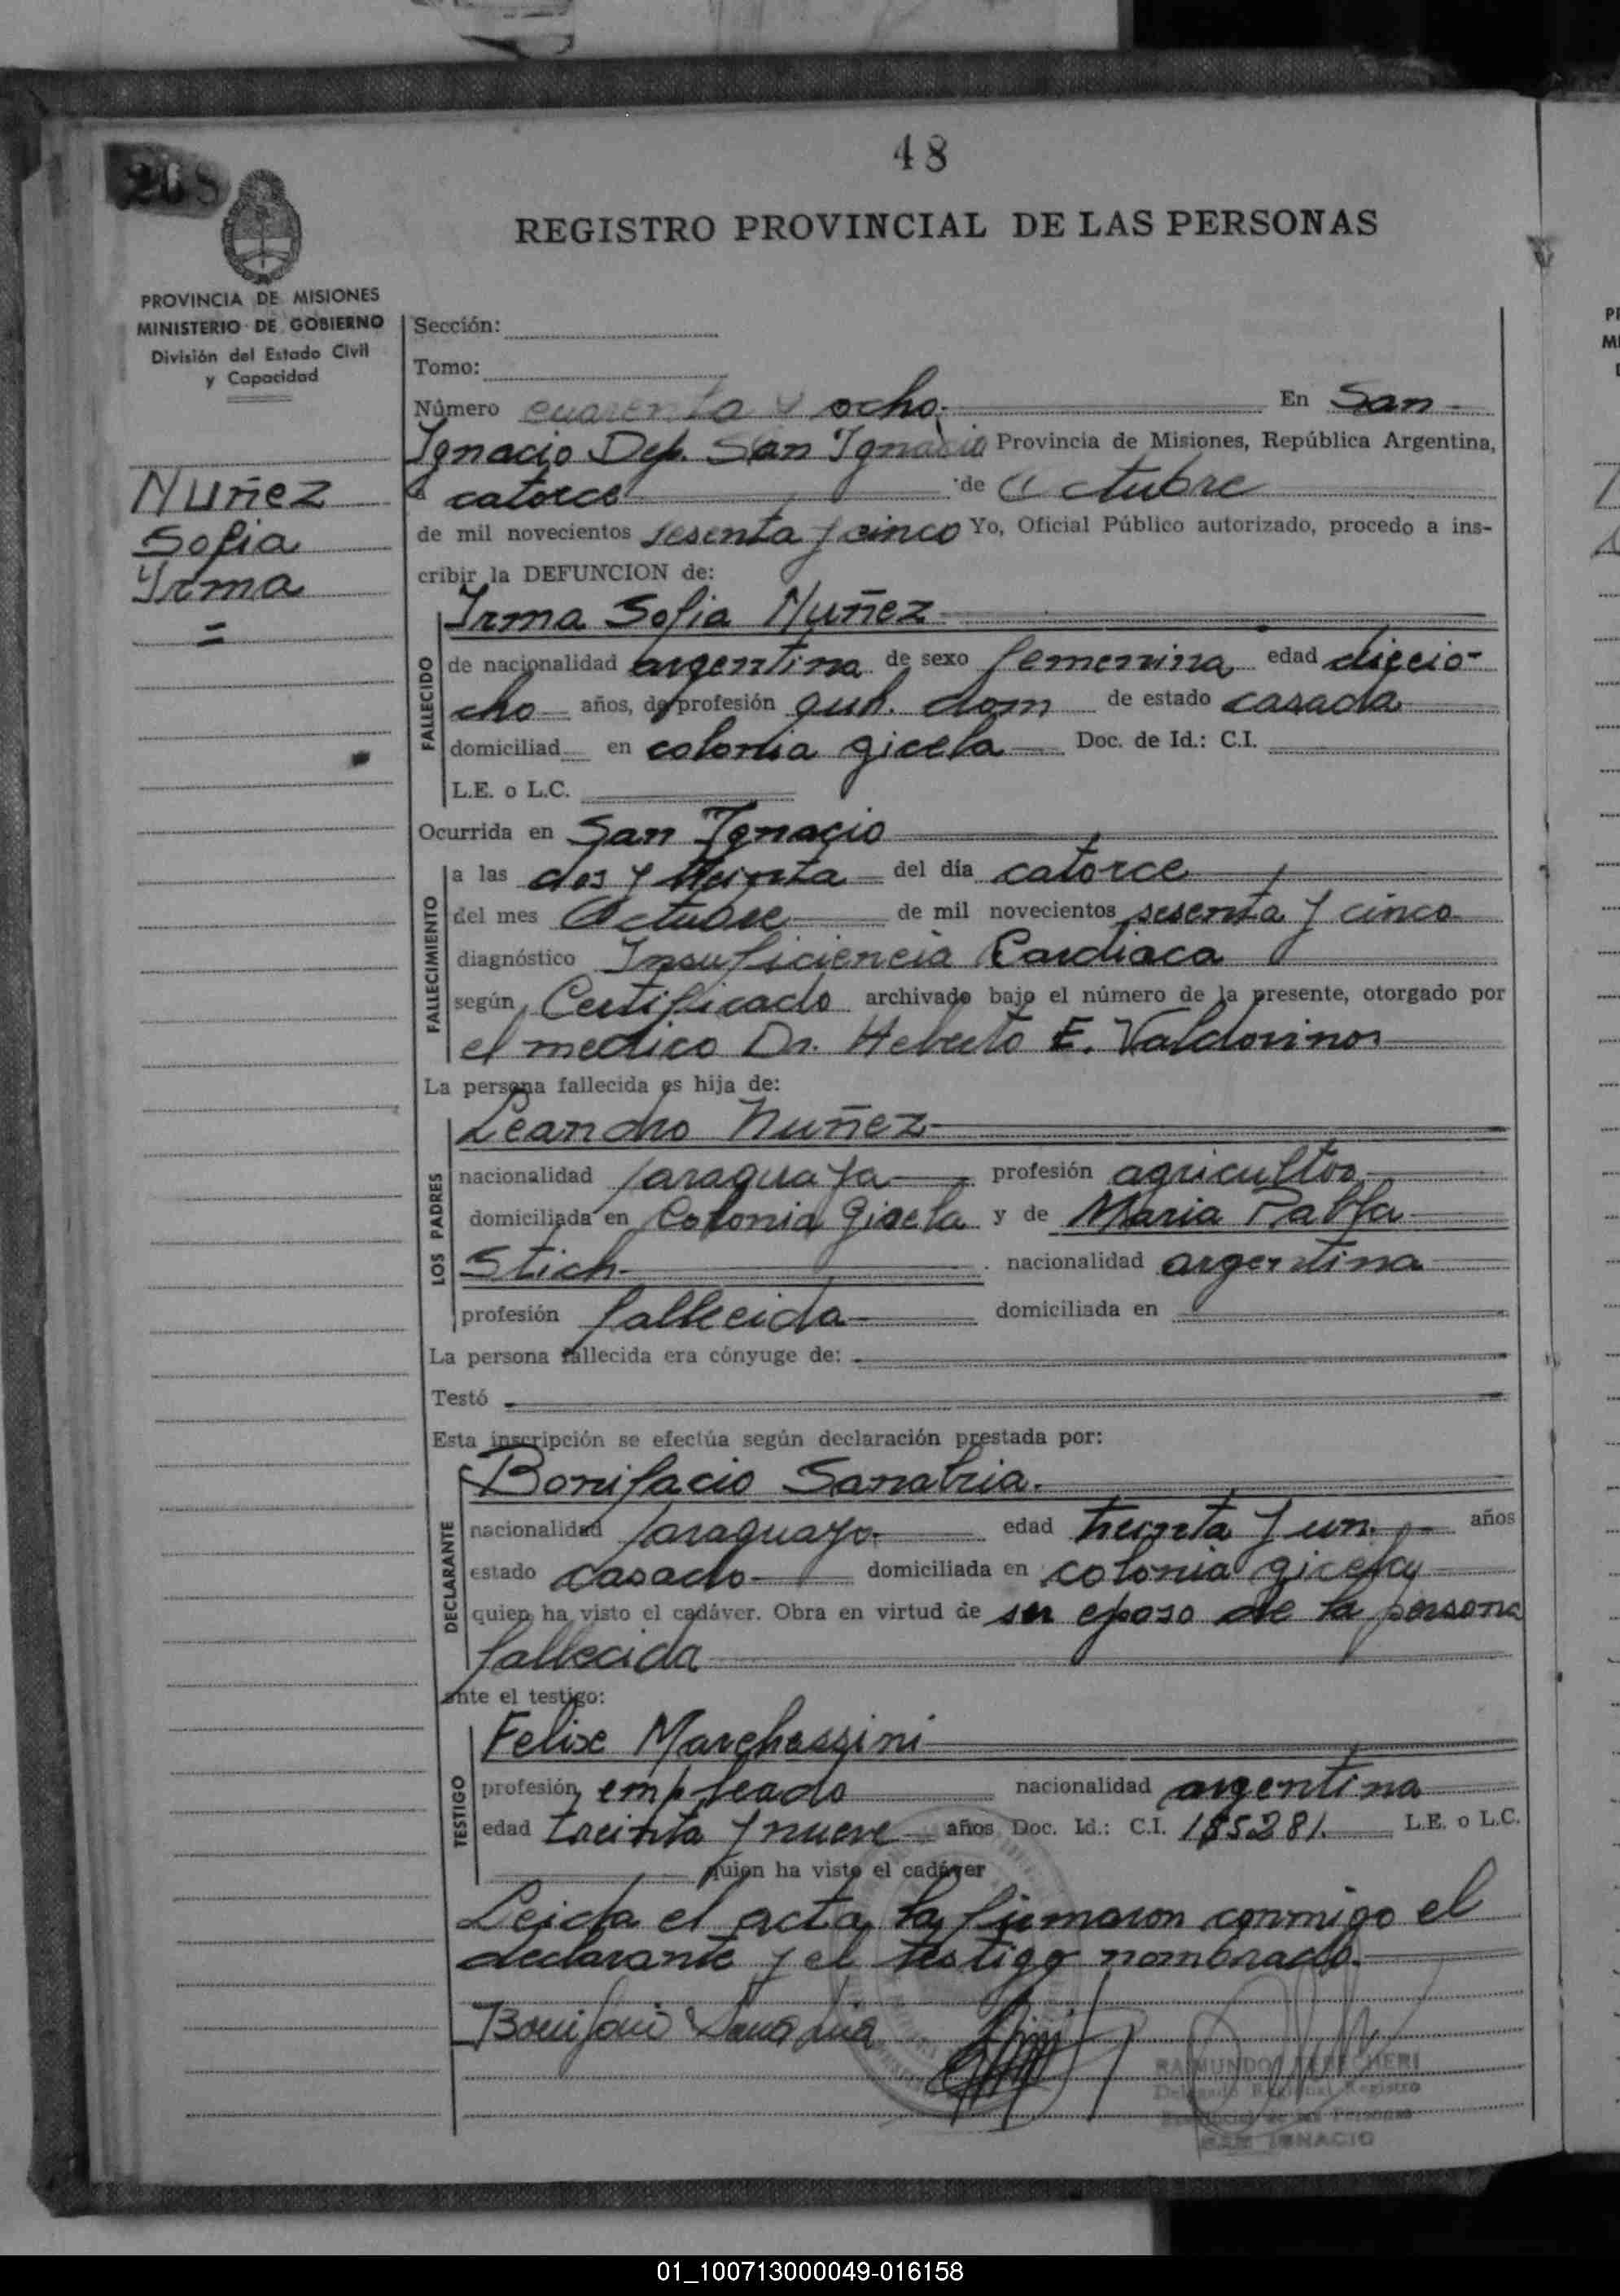 48
268
REGISTRO PROVINCIAL DE LAS PERSONAS
PROVINCIA DE MISIONES
MINISTERIO DE GOBIERNO
División del Estado Civil
y Capacidad
Nuñez
Sofia
Irma
=
Sección:
Tomo:
Número cuarenta y ocho. En San
Ignacio Dep. San Ignacio Provincia de Misiones, República Argentina,
a catorce de Octubre
de mil novecientos sesenta y cinco Yo, Oficial Público autorizado, procedo a ins-
cribir la DEFUNCION de:
Irma Sofia Nuñez
FALLECIDO
de nacionalidad argentina de sexo femenina edad diecio-
cho años, de profesión queh. dom de estado casada
domiciliad en colonia gicela Doc. de Id.: C.I.
L.E. o L.C.
Ocurrida en San Ignacio
FALLECIMIENTO
a las dos y treinta del día catorce
del mes Octubre de mil novecientos sesenta y cinco
diagnóstico Insuficiencia Cardiaca
según Certificado archivado bajo el número de la presente, otorgado por
el medico Dr. Heberto E. Valdovinos
La persona fallecida es hija de:
LOS PADRES
Leandro Nuñez
nacionalidad paraguaya profesión agricultor
domiciliada en Colonia Gisela y de Maria Pabla
Stich nacionalidad argentina
profesión fallecida domiciliada en
La persona fallecida era cónyuge de:
Testó
Esta inscripción se efectúa según declaración prestada por:
DECLARANTE
Bonifacio Sanabria.
nacionalidad paraguayo. edad treinta y un. años
estado casado domiciliada en colonia gicela
quien ha visto el cadáver. Obra en virtud de ser eposo de la persona
fallecida
ante el testigo:
TESTIGO
Felix Marchessini
profesión empleado nacionalidad argentina
edad treinta y nueve años Doc. Id.: C.I. 185281. L.E. o L.C.
quien ha visto el cadáver
Leida el acta, la firmaron conmigo el
declarante y el testigo nombrado.
Bonifacio Sanabria
RAIMUNDO
Delegado Regional Registro
Provincial de las Personas
SAN IGNACIO
01_100713000049-016158